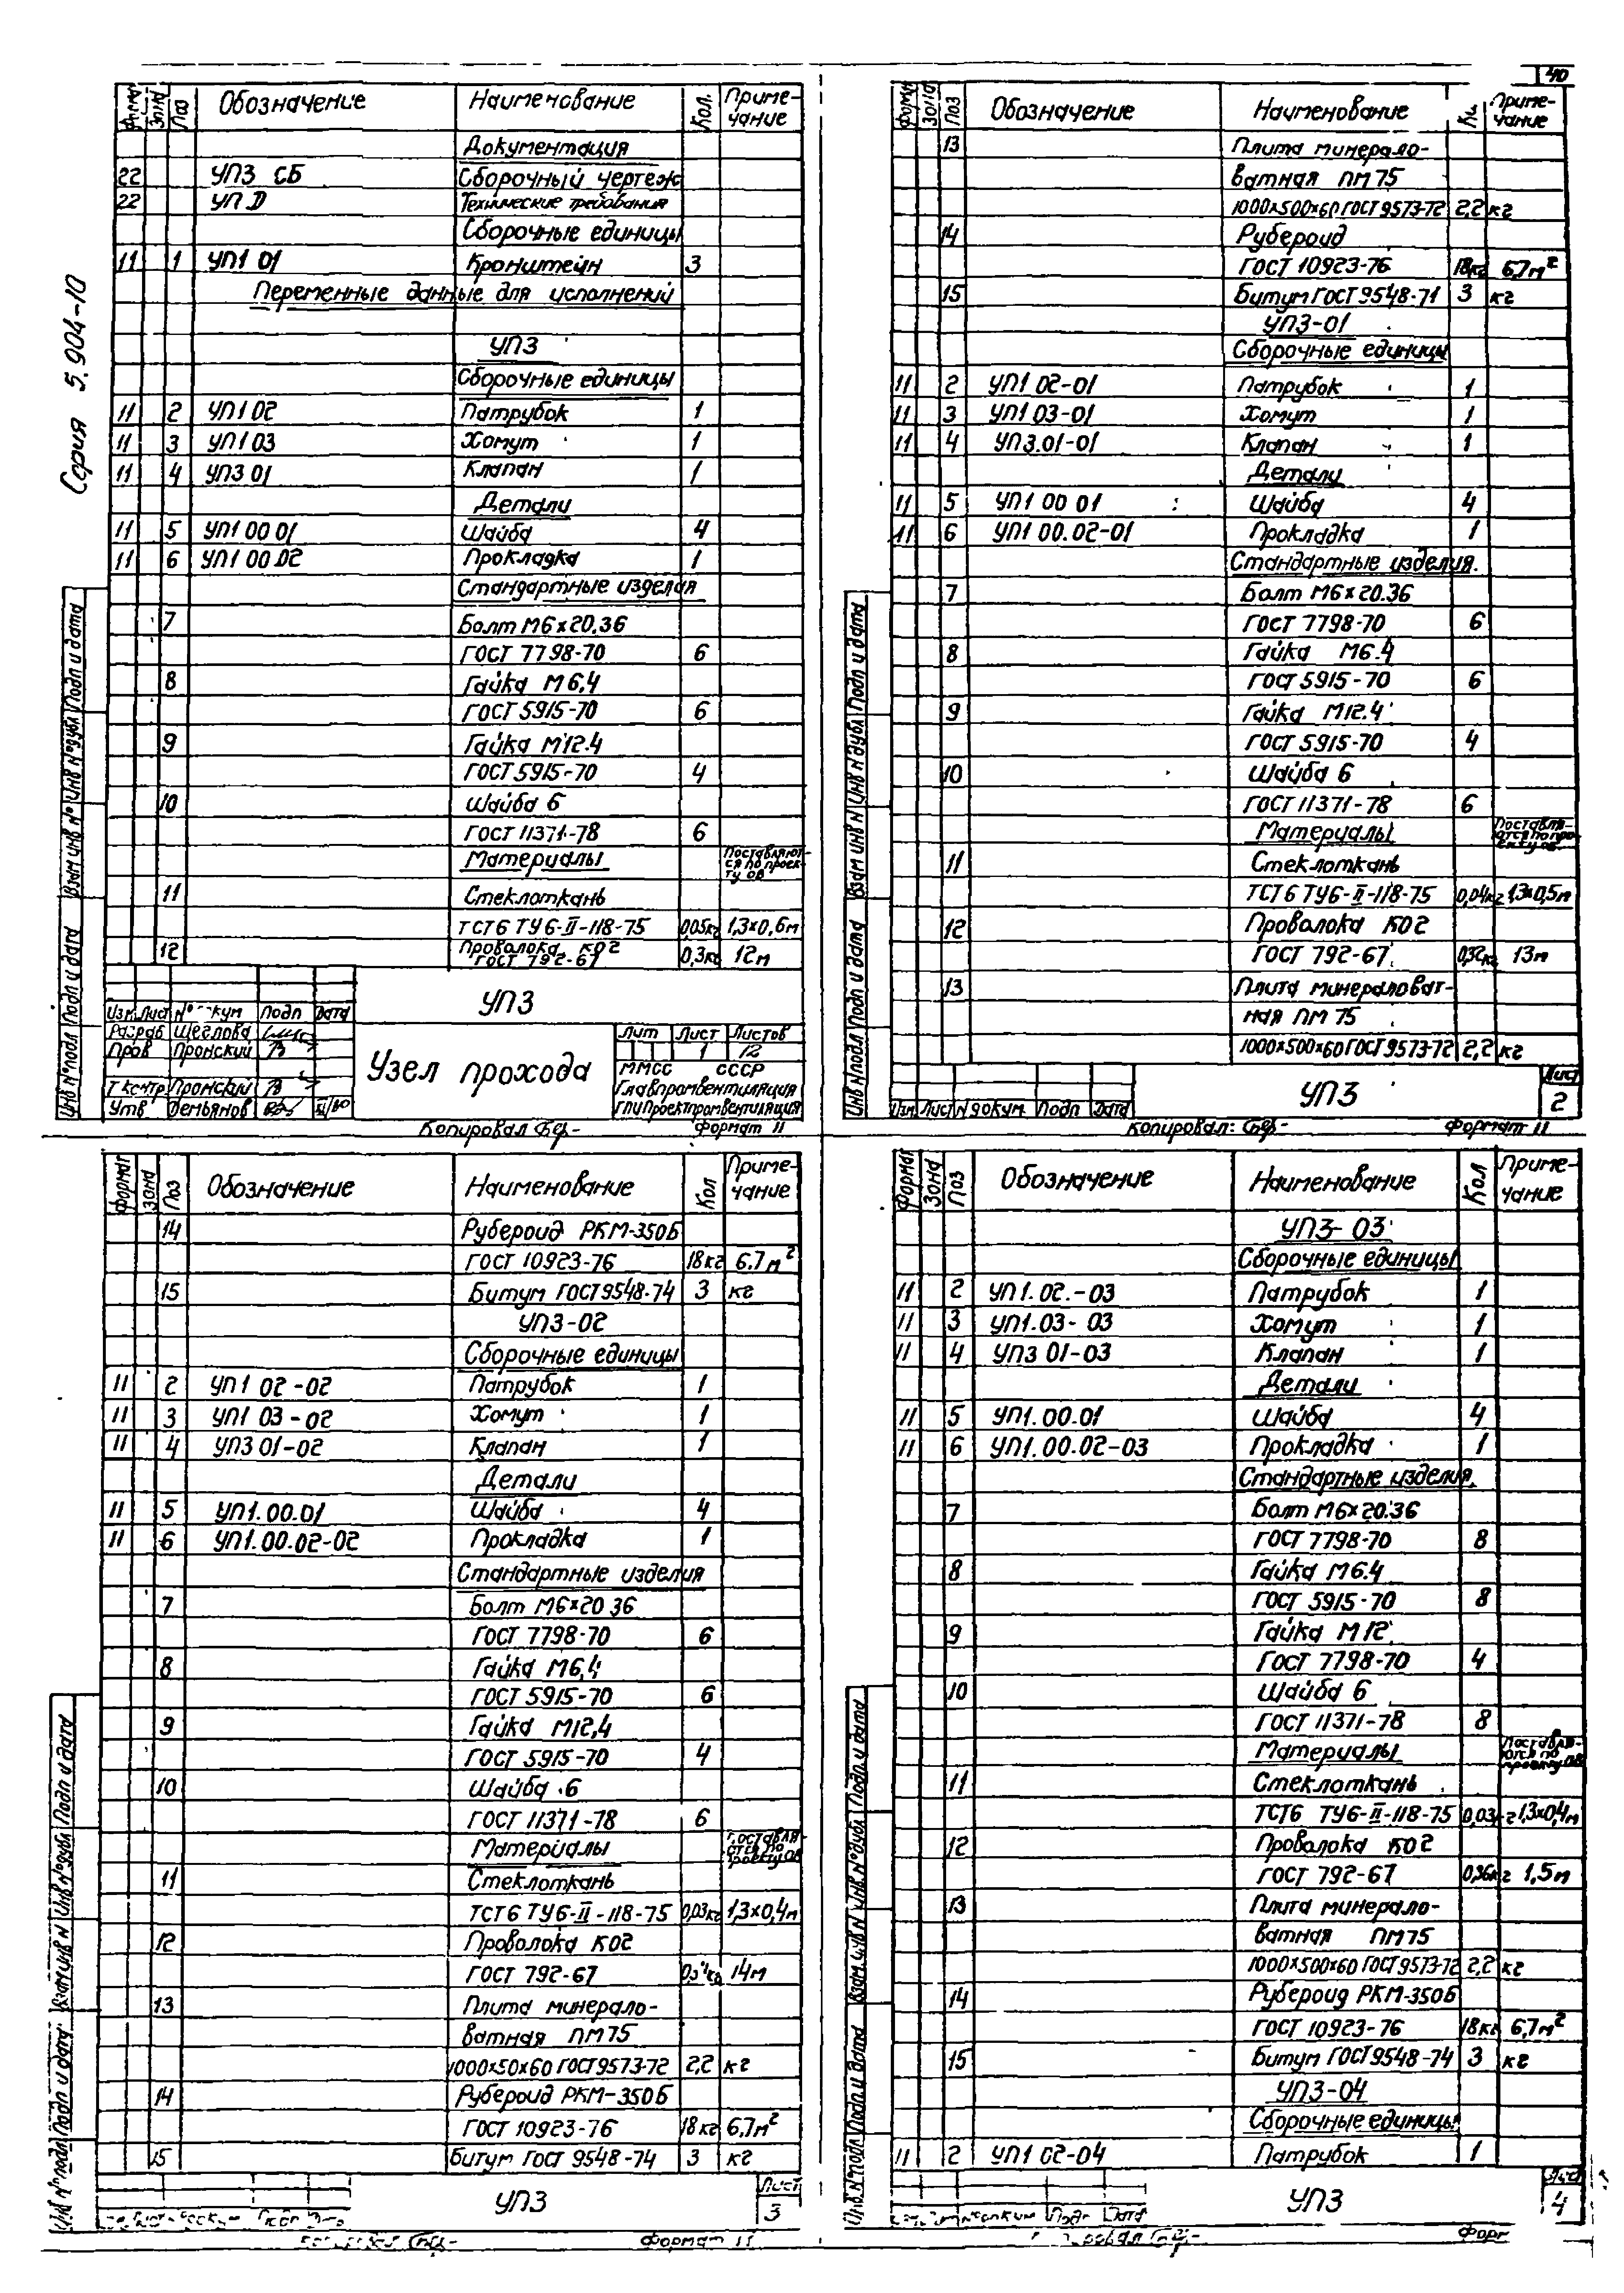 40
Серия 5.904-10
Формат Зона Поз Обозначение Наименование Кол. Примечание
Документация
22 УПЗ СБ Сборочный чертеж
22 УП Д Технические требования
Сборочные единицы
11 1 УП1 01 Кронштейн 3
Переменные данные для исполнений
УПЗ
Сборочные единицы
11 2 УП1 02 Патрубок 1
11 3 УП1 03 Хомут 1
11 4 УПЗ 01 Клапан 1
Детали
11 5 УП1 00 01 Шайба 4
11 6 УП1 00 02 Прокладка 1
Стандартные изделия
7 Болт М6х20.36
ГОСТ 7798-70 6
8 Гайка М6.4
ГОСТ 5915-70 6
9 Гайка М12.4
ГОСТ 5915-70 4
10 Шайба 6
ГОСТ 11371-78 6
Материалы Поставляются по проекту ОВ
11 Стеклоткань
ТСТ6 ТУ6-II-118-75 0,05кг 1,3х0,6м
12 Проволока КО2
ГОСТ 792-67 0,3кг 12м
УПЗ
Изм Лист № докум Подп Дата
Разраб Щеглова
Пров Пронский
Т контр Пронский
Утв Демьянов
Узел прохода
Лит Лист Листов
1 12
ММСС СССР
Главпромвентиляция
ГПИ Проектпромвентиляция
Инв № подл Подп и дата Взам инв № Инв № дубл Подп и дата
Копировал Формат 11
Форм Зона Поз Обозначение Наименование Кол Примечание
13 Плита минерало-
ватная ПМ75
1000х500х60 ГОСТ 9573-72 2,2 кг
14 Рубероид
ГОСТ 10923-76 18кг 6,7м²
15 Битум ГОСТ 9548-71 3 кг
УПЗ-01
Сборочные единицы
11 2 УП1 02-01 Патрубок 1
11 3 УП1 03-01 Хомут 1
11 4 УПЗ.01-01 Клапан 1
Детали
11 5 УП1 00 01 Шайба 4
11 6 УП1 00.02-01 Прокладка 1
Стандартные изделия.
7 Болт М6х20.36
ГОСТ 7798-70 6
8 Гайка М6.4
ГОСТ 5915-70 6
9 Гайка М12.4
ГОСТ 5915-70 4
10 Шайба 6
ГОСТ 11371-78 6
Материалы Поставляются по проекту ОВ
11 Стеклоткань
ТСТ6 ТУ6-II-118-75 0,04кг 1,3х0,5м
12 Проволока КО2
ГОСТ 792-67 0,32кг 13м
13 Плита минераловат-
ная ПМ 75
1000х500х60 ГОСТ 9573-72 2,2 кг
Изм Лист № докум Подп Дата УПЗ Лист 2
Инв № подл Подп и дата Взам инв № Инв № дубл Подп и дата
Копировал: Формат 11
Формат Зона Поз Обозначение Наименование Кол Примечание
14 Рубероид РКМ-350Б
ГОСТ 10923-76 18кг 6.7м²
15 Битум ГОСТ 9548-74 3 кг
УПЗ-02
Сборочные единицы
11 2 УП1 02-02 Патрубок 1
11 3 УП1 03-02 Хомут 1
11 4 УПЗ 01-02 Клапан 1
Детали
11 5 УП1.00.01 Шайба 4
11 6 УП1.00.02-02 Прокладка 1
Стандартные изделия
7 Болт М6х20 36
ГОСТ 7798-70 6
8 Гайка М6,4
ГОСТ 5915-70 6
9 Гайка М12,4
ГОСТ 5915-70 4
10 Шайба 6
ГОСТ 11371-78 6
Материалы Поставляются по проекту ОВ
11 Стеклоткань
ТСТ6 ТУ6-II-118-75 0,03кг 1,3х0,4м
12 Проволока КО2
ГОСТ 792-67 14м
13 Плита минерало-
ватная ПМ75
1000х50х60 ГОСТ 9573-72 2,2 кг
14 Рубероид РКМ-350Б
ГОСТ 10923-76 18кг 6,7м²
15 Битум ГОСТ 9548-74 3 кг
УПЗ Лист 3
Инв № подл Подп и дата Взам инв № Инв № дубл Подп и дата
Формат 11
Формат Зона Поз Обозначение Наименование Кол Примечание
УПЗ-03
Сборочные единицы
11 2 УП1.02.-03 Патрубок 1
11 3 УП1.03-03 Хомут 1
11 4 УПЗ 01-03 Клапан 1
Детали
11 5 УП1.00.01 Шайба 4
11 6 УП1.00.02-03 Прокладка 1
Стандартные изделия.
7 Болт М6х20.36
ГОСТ 7798-70 8
8 Гайка М6.4
ГОСТ 5915-70 8
9 Гайка М12.
ГОСТ 7798-70 4
10 Шайба 6
ГОСТ 11371-78 8
Материалы Поставляются по проекту ОВ
11 Стеклоткань
ТСТ6 ТУ6-II-118-75 0,03 кг 1,3х0,4м
12 Проволока КО2
ГОСТ 792-67 0,36кг 1,5м
13 Плита минерало-
ватная ПМ75
1000х500х60 ГОСТ 9573-72 2,2 кг
14 Рубероид РКМ-350Б
ГОСТ 10923-76 18кг 6,7м²
15 Битум ГОСТ 9548-74 3 кг
УПЗ-04
Сборочные единицы
11 2 УП1 02-04 Патрубок 1
УПЗ Лист 4
Инв № подл Подп и дата Взам. инв № Инв. № дубл Подп и дата
Форм